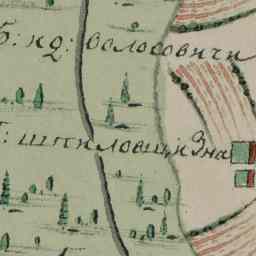 б: нд: волосовичи
г: шпиловщи Зна